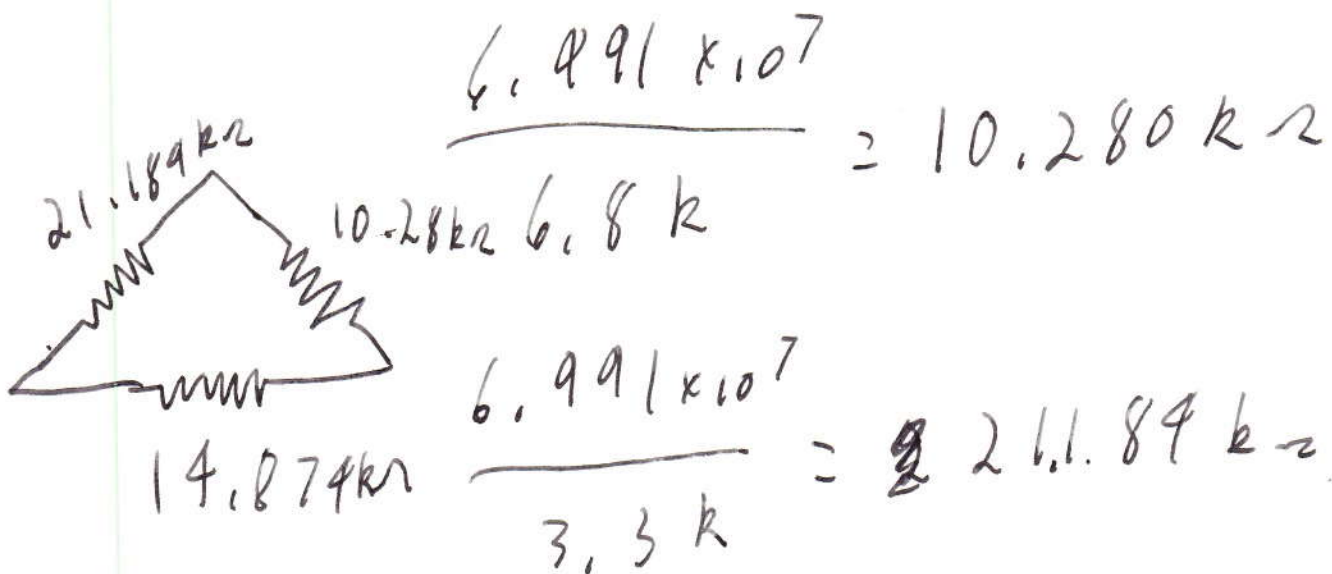 6.991 x10⁷
6.8 k
= 10.280 kΩ
21.184kΩ
10.28kΩ
14.874kΩ
6.991x10⁷
3.3 k
= 21.184 kΩ